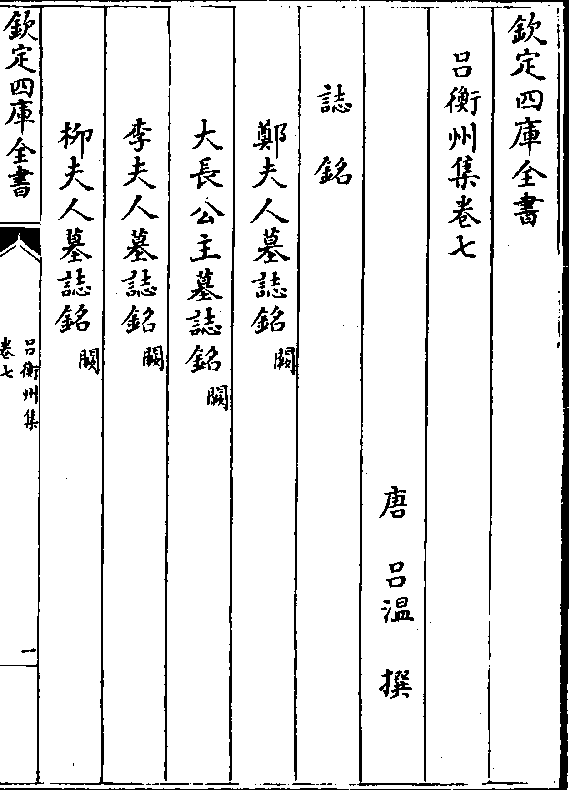 欽定四庫全書
呂衡州集卷七
唐 呂溫 撰
誌銘
鄭夫人墓誌銘闕
大長公主墓誌銘闕
李夫人墓誌銘闕
柳夫人墓誌銘闕
欽定四庫全書
呂衡州集
卷七
一